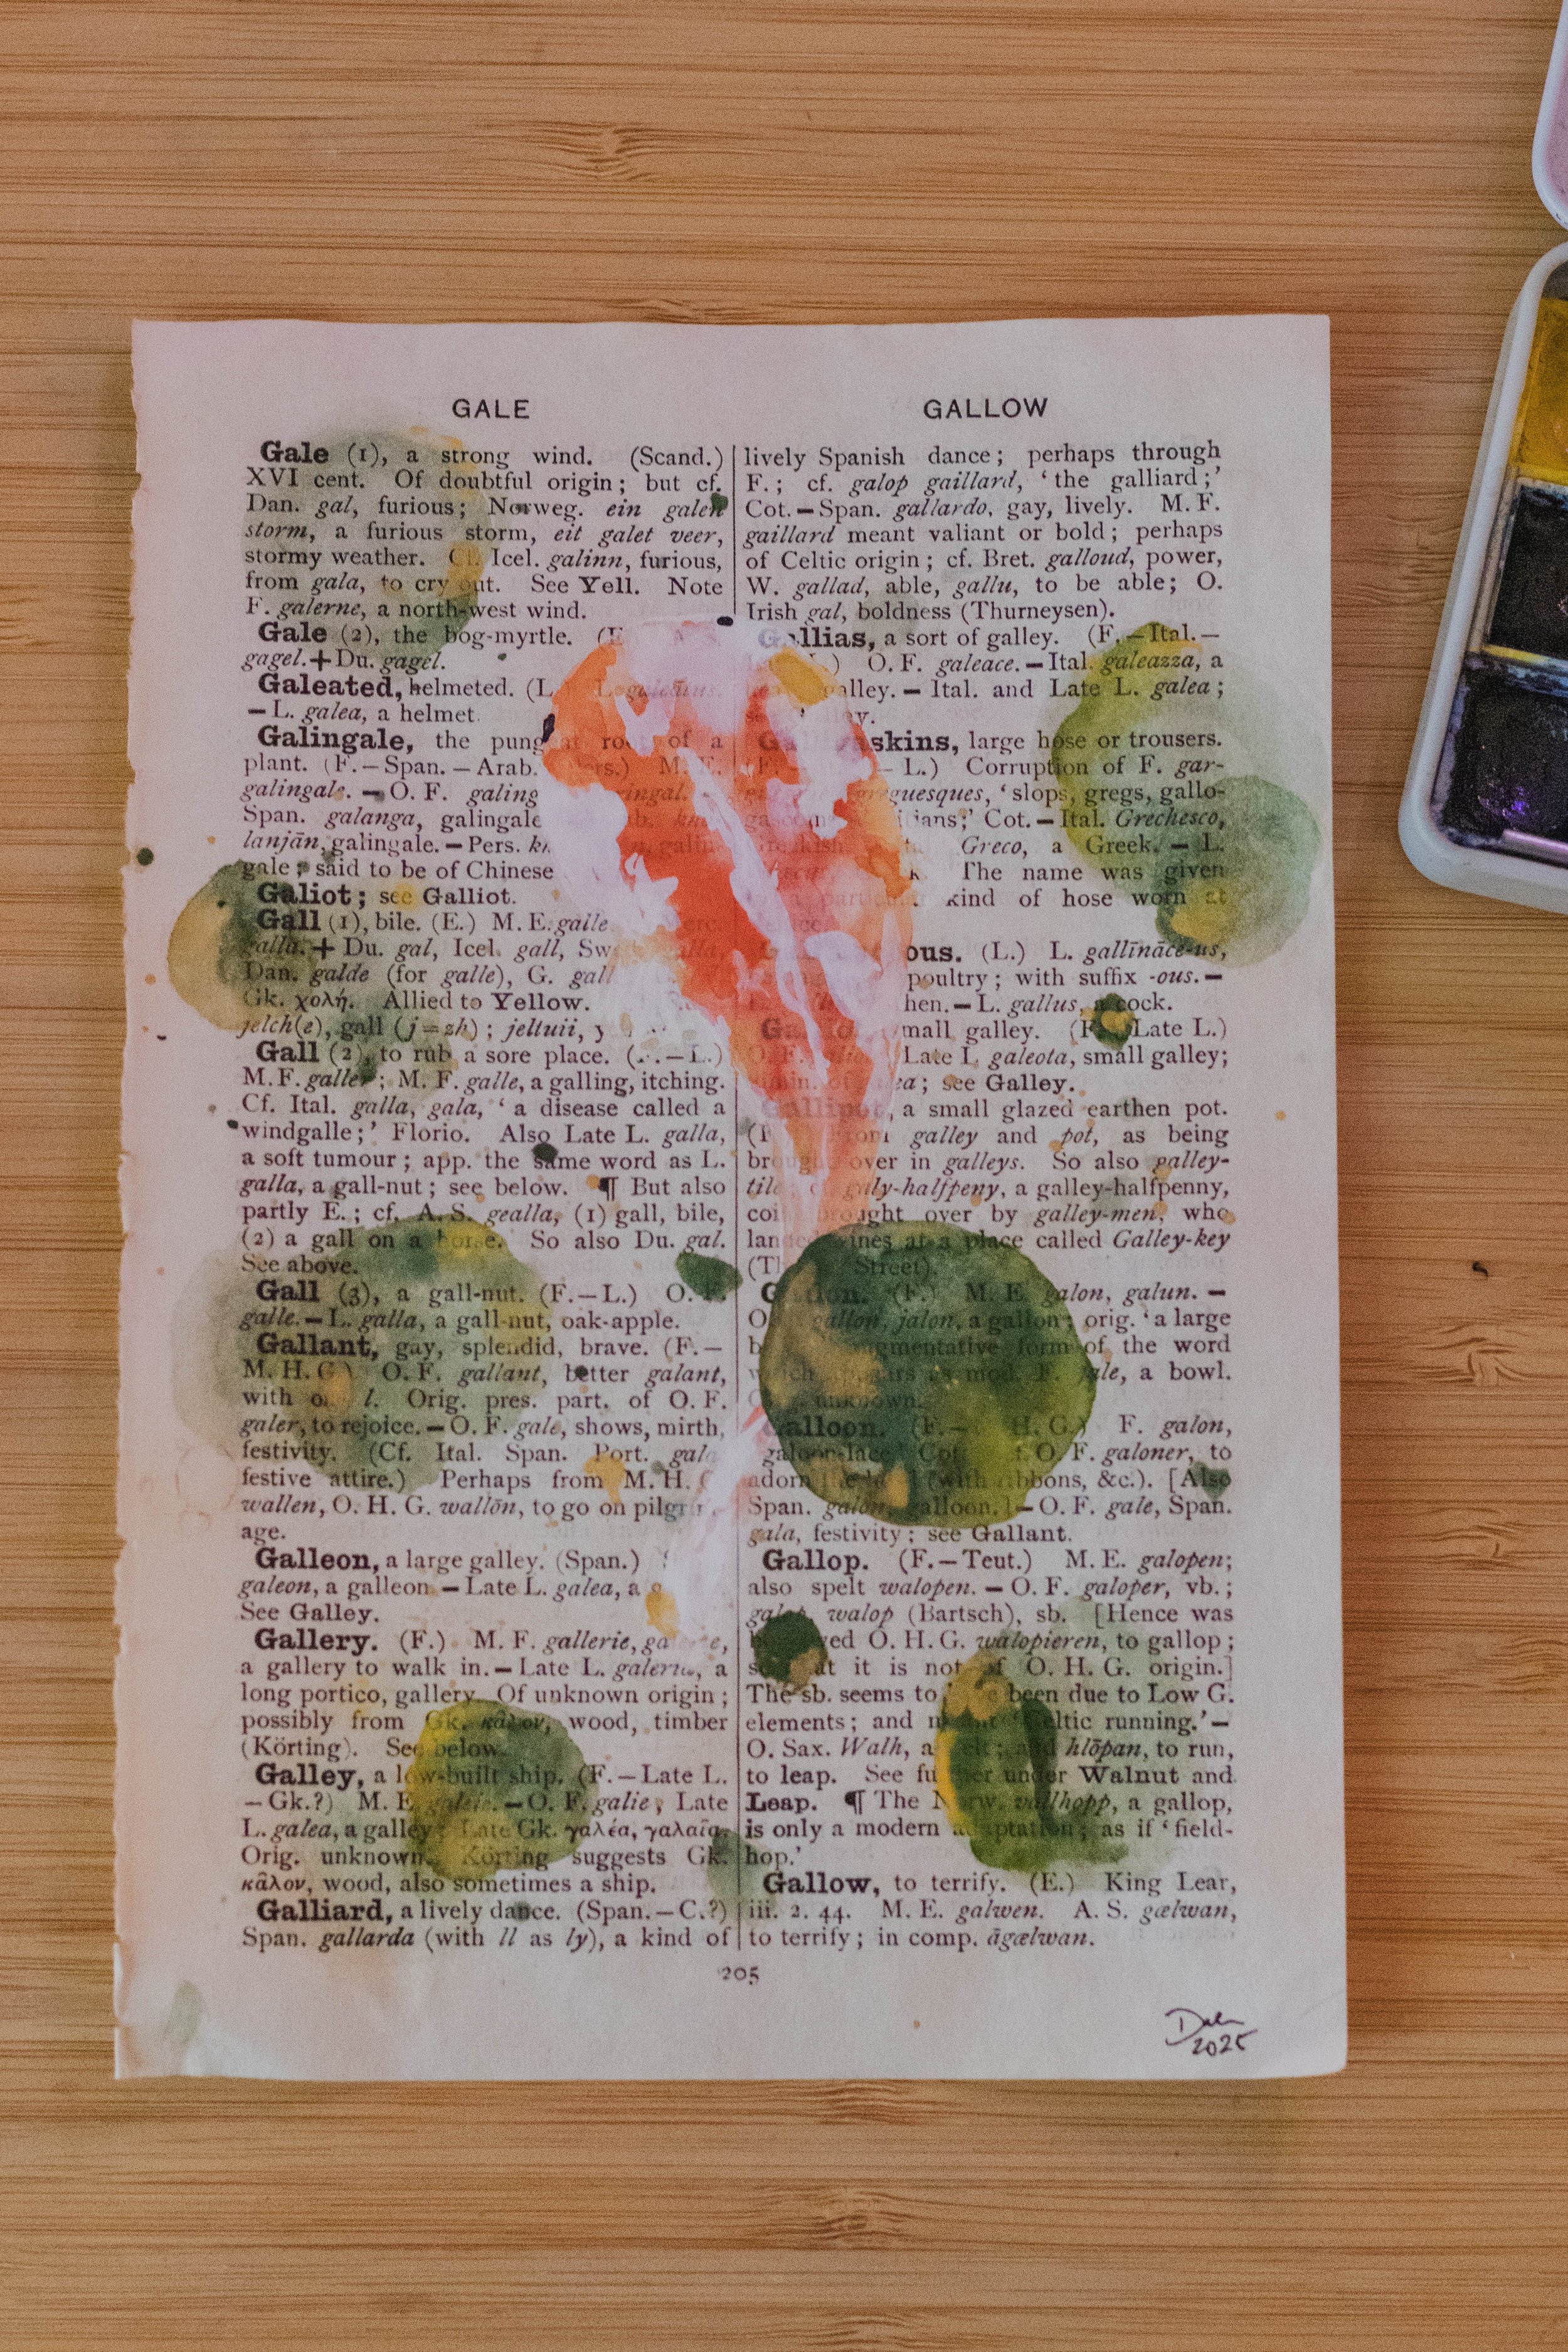 GALE
Gale (1), a strong wind. (Scand.)
XVI cent. Of doubtful origin; but cf.
Dan. gal, furious; Norweg. ein galen
storm, a furious storm, eit galet veer,
stormy weather. Cf. Icel. galinn, furious,
from gala, to cry out. See Yell. Note
F. galerne, a north-west wind.
Gale (2), the bog-myrtle. (E
gagel.+Du. gagel.
Galeated, helmeted. (L
— L. galea, a helmet.
Galingale, the pungent root of a
plant. (F. – Span. – Arab. – Pers.) M. E.
galingale. – O. F. galing
Span. galanga, galingale
lanjān, galingale. – Pers.
gale; said to be of Chinese
Galiot; see Galliot.
Gall (1), bile. (E.) M. E. galle
galla.+ Du. gal, Icel. gall, Sw
Dan. galde (for galle), G. gal
Gk. χολή. Allied to Yellow.
jelch(e), gall (j=zh); jeltuii, y
Gall (2), to rub a sore place. (F. – L.)
M.F. galler; M. F. galle, a galling, itching.
Cf. Ital. galla, gala, ‘a disease called a
windgalle;’ Florio. Also Late L. galla,
a soft tumour; app. the same word as L.
galla, a gall-nut; see below. ¶ But also
partly E.; cf. A. S. gealla, (1) gall, bile,
(2) a gall on a horse. So also Du. gal.
See above.
Gall (3), a gall-nut. (F. – L.) O. F.
galle. – L. galla, a gall-nut, oak-apple.
Gallant, gay, splendid, brave. (F. –
M. H. G.) O. F. gallant, better galant,
with l. Orig. pres. part. of O. F.
galer, to rejoice. – O. F. gale, shows, mirth,
festivity. (Cf. Ital. Span. Port. gala
festive attire.) Perhaps from M. H. G
wallen, O. H. G. wallōn, to go on pilgrim
age.
Galleon, a large galley. (Span.)
galeon, a galleon – Late L. galea, a
See Galley.
Gallery. (F.) M. F. gallerie,
a gallery to walk in. – Late L. galeria, a
long portico, gallery. Of unknown origin;
possibly from Gk. κᾶλον, wood, timber
(Körting). See below.
Galley, a low-built ship. (F. – Late L.
– Gk.?) M. E. galeie. – O. F. galie; Late
L. galea, a galley; Late Gk. γαλέα, γαλαῖα.
Orig. unknown. Körting suggests Gk.
κᾶλον, wood, also sometimes a ship.
Galliard, a lively dance. (Span. – C.?)
Span. gallarda (with ll as ly), a kind of
GALLOW
lively Spanish dance; perhaps through
F.; cf. galop gaillard, ‘the galliard;’
Cot. – Span. gallardo, gay, lively. M. F.
gaillard meant valiant or bold; perhaps
of Celtic origin; cf. Bret. galloud, power,
W. gallad, able, gallu, to be able; O.
Irish gal, boldness (Thurneysen).
Gallias, a sort of galley. (F. – Ital. –
O. F. galeace. – Ital. galeazza, a
galley. – Ital. and Late L. galea;
Galligaskins, large hose or trousers.
L.) Corruption of F. gar-
guesques, ‘slops, gregs, gallo-
Cot. – Ital. Grechesco,
Greco, a Greek. – L.
The name was given
a particular kind of hose worn at
ous. (L.) L. gallīnāce-us,
poultry; with suffix -ous. –
hen. – L. gallus, a cock.
small galley. (F. – Late L.)
Late L. galeota, small galley;
see Galley.
Gallipot, a small glazed earthen pot.
from galley and pot, as being
brought over in galleys. So also galley-
tile; galy-halfpeny, a galley-halfpenny,
coin brought over by galley-men, who
landed wines at a place called Galley-key
Street).
Gallon. (F.) M. E. galon, galun. –
O. F. gallon, jalon, a gallon; orig. ‘a large
augmentative form of the word
which appears as mod. F. jale, a bowl.
unknown.
Galloon. (F. – H. G.) F. galon,
galoon-lace Cot O. F. galoner, to
adorn the head (with ribbons, &c.). [Also
Span. galon, galloon.] – O. F. gale, Span.
gala, festivity; see Gallant.
Gallop. (F. – Teut.) M. E. galopen;
also spelt walopen. – O. F. galoper, vb.;
galop, walop (Bartsch), sb. [Hence was
borrowed O. H. G. walopieren, to gallop;
so that it is not of O. H. G. origin.]
The sb. seems to have been due to Low G.
elements; and meant ‘Celtic running.’ –
O. Sax. Walh, a Celt; and hlōpan, to run,
to leap. See further under Walnut and
Leap. ¶ The Norw. vallhopp, a gallop,
is only a modern adaptation; as if ‘field-
hop.’
Gallow, to terrify. (E.) King Lear,
iii. 2. 44. M. E. galwen. A. S. gælwan,
to terrify; in comp. āgælwan.
205
2025